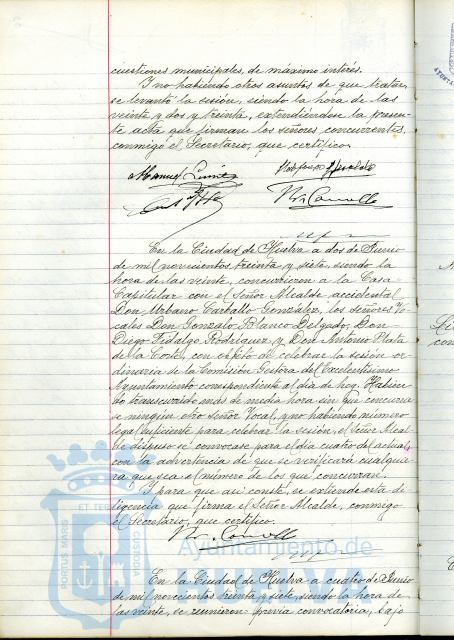 cuestiones municipales, de máximo interés.
Y no habiendo otros asuntos de que tratar,
se levantó la sesión, siendo la hora de las
veinte y dos y treinta, extendiéndose la presen-
te acta que firman los señores concurrentes,
conmigo el Secretario, que certifico.
En la Ciudad de Huelva a dos de Junio
de mil novecientos treinta y siete, siendo la
hora de las veinte, concurrieron a la Casa
Capitular con el Señor Alcalde accidental
Don Urbano Carballo González, los señores Vo-
cales Don Gonzalo Blanco Delgado, Don
Diego Fidalgo Rodríguez y Don Antonio Plata
de la Corte, con objeto de celebrar la sesión or-
dinaria de la Comisión Gestora del Excelentísimo
Ayuntamiento correspondiente al día de hoy. Habien-
do transcurrido más de media hora sin que concurrie-
se ningún otro señor Vocal, y no habiendo número
legal suficiente para celebrar la sesión, el Señor Alcal-
de dispuso se convocase para el día cuatro del actual,
con la advertencia de que se verificará cualquie-
ra que sea el número de los que concurran.
Y para que así conste, se extiende esta di-
ligencia que firma el Señor Alcalde, conmigo
el Secretario, que certifico.
Ayuntamiento de
HUELVA
PORTUS MARIS ET TERRAE CUSTODIA
En la Ciudad de Huelva a cuatro de Junio
de mil novecientos treinta y siete, siendo la hora de
las veinte, se reunieron previa convocatoria, bajo